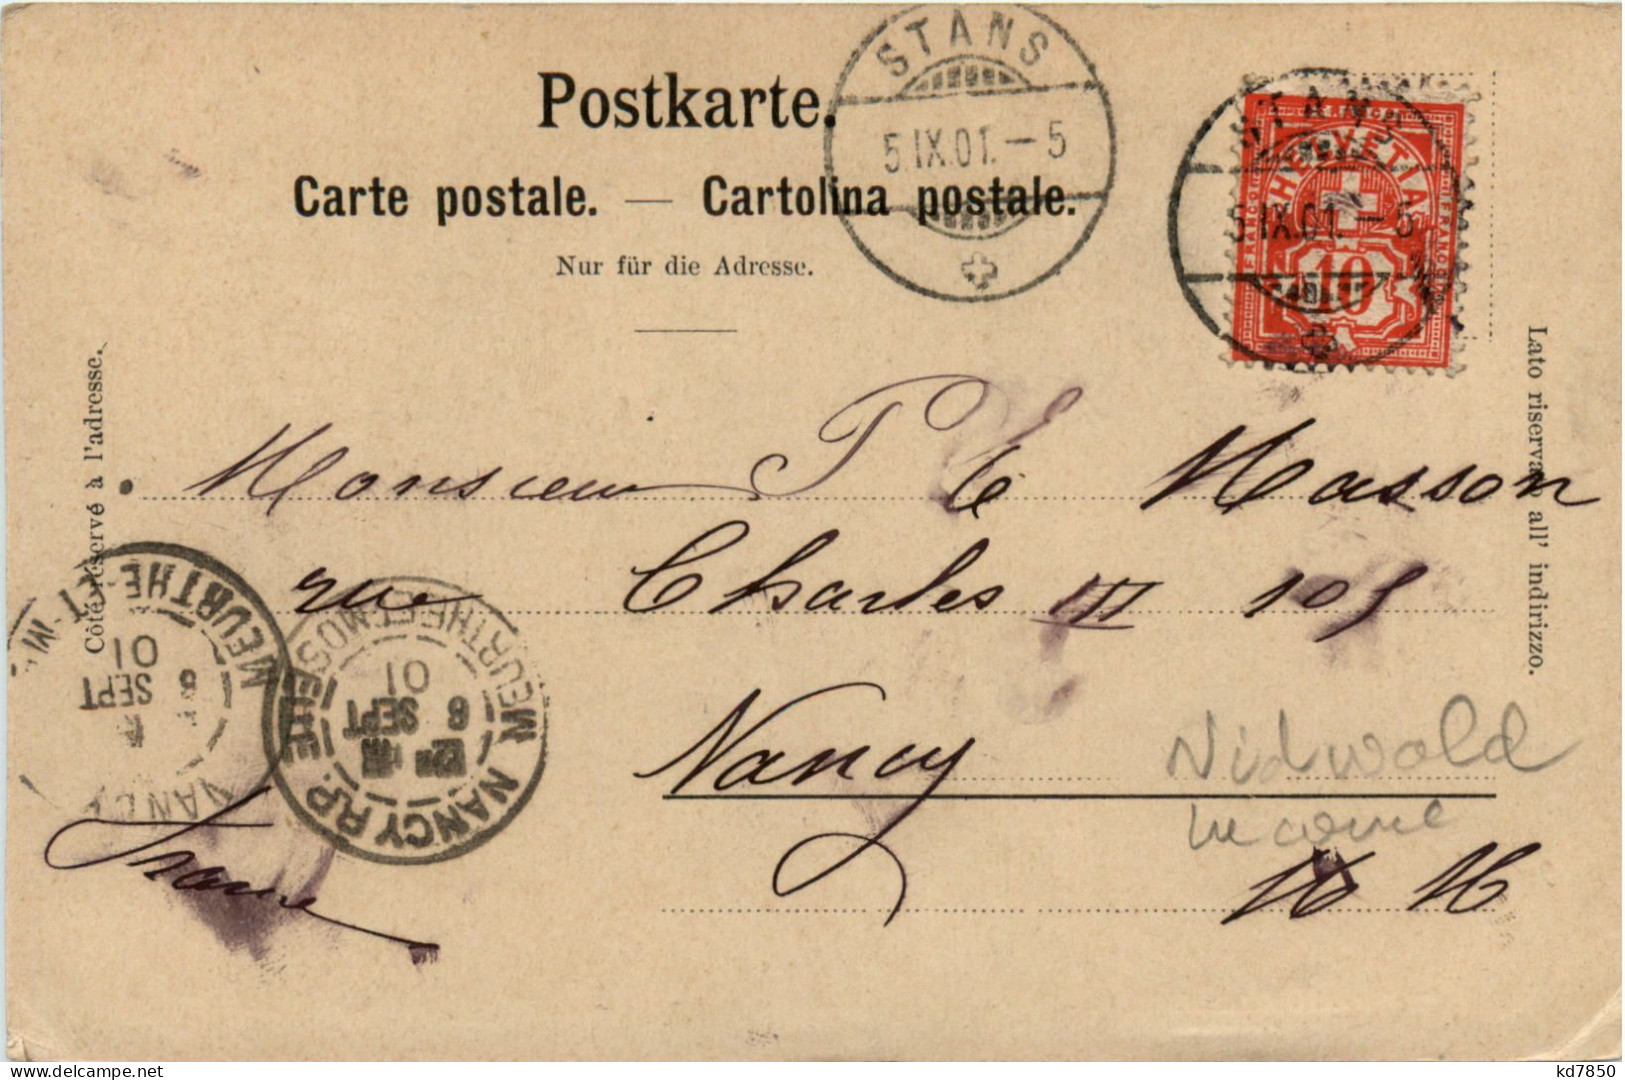 Postkarte.
Carte postale. — Cartolina postale.
Nur für die Adresse.
STANS
5 IX.01. – 5
STANS
5 IX.01. – 5
HELVETIA
FRANCO
FRANCO
10
Côté réservé à l'adresse.
Lato riservato all' indirizzo.
Monsieur P E Masson
rue Charles III 105
Nancy
France
Nidwald
MEURTHE-ET-M
01
SEPT
6
NANCY
MEURTHE ET MOSELLE
01
SEPT
6
NANCY R.P.
kd7850